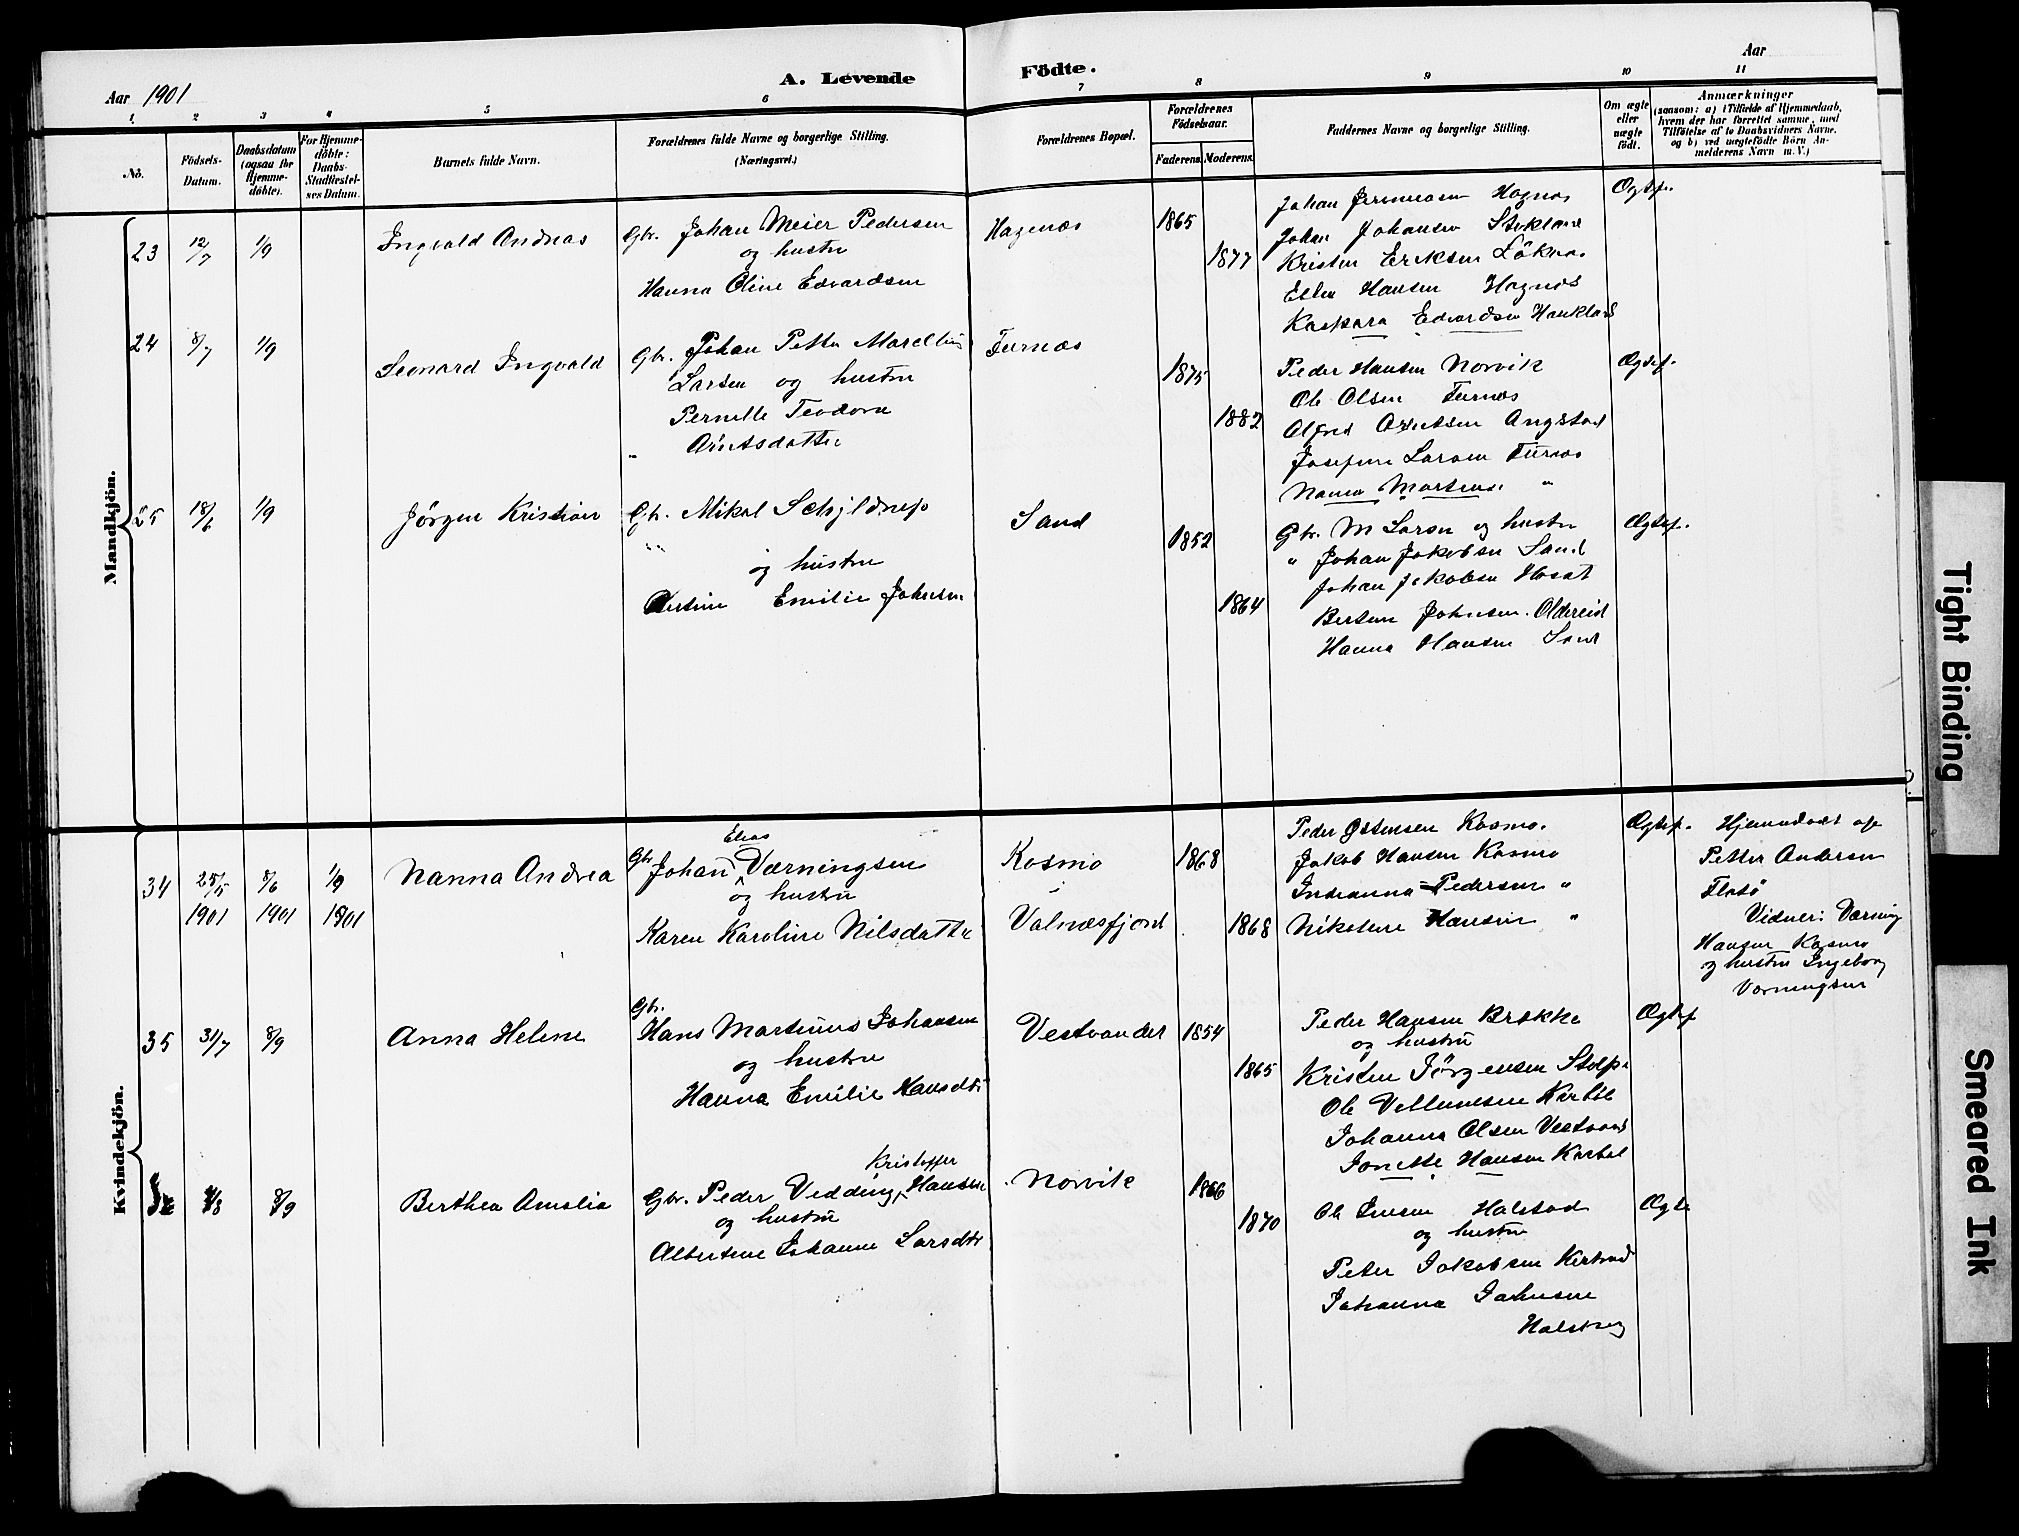 Aar 1901
A. Levende Födte.
Aar
1 2 3 4 5 6 7 8 9 10 11
No.
Födsels-Datum.
Daabsdatum (ogsaa for Hjemme-döbte).
For Hjemme-döbte: Daabs-Stadfæstel-ses Datum.
Barnets fulde Navn.
Forældrenes fulde Navne og borgerlige Stilling.
(Næringsvei.)
Forældrenes Bopæl.
Forældrenes Födselsaar.
Faderens. Moderens.
Faddernes Navne og borgerlige Stilling.
Om ægte eller uægte födt.
Anmærkninger
(saasom: a) i Tilfælde af Hjemmedaab,
hvem der har forrettet samme, med
Tilföielse af to Daabsvidners Navne.
og b) ved uægtefödte Börn An-
melderens Navn m. V.)
Mandkjön.
23 12/7 1/9 Ingvald Andreas
Gbr. Johan Meier Pedersen
og hustru
Hanna Oline Edvardsen
Hagenæs
1865
1877
Johan Hagnæs
Johan Johansen Stokland
Kristen Eriksen Löknes
Ellen Hansen Hagnæs
Kaspara Edvardsen Haukland
Ægtef.
24 8/7 1/9 Leonard Ingvald
Gbr. Johan Petter Marelius
Larsen og hustru
Pernelle Teodora
" Arntsdatter
Furnæs
1875
1882
Peder Hansen Norvik
Ole Olsen Furnæs
Alfred Arntsen Angstad
Josefine Larsen Furnæs
Martens "
Ægtef.
25 18/6 1/9 Jörgen Kristian
Gbr. Mikal Schjldrup
" "
og hustru
Emilie Johnsen
Sand
1852
1864
Gbr. M Larsen og hustru
" Johan Jakobsen Sand
Johan Jakobsen
Johnsen. Oldereid
Hanna Hansen Sand
Ægtef.
Kvindekjön.
34 25/5 1901 8/6 1901 1/9 1901 Nanna Andrea
Gbr Johan Elias Værningsen
og hustru
Karen Karoline Nilsdatter
Kosmo
i
Valnæsfjord
1868
1868
Peder Östensen Kosmo.
Jakob Hansen Kosmo
Indianna Pedersen "
Nikoline Hansen "
Ægtef.
Hjemmedöbt af
Petter Andersen
Flatö
Vidner: Værning
Hansen Kosmo
og hustru Ingeborg
Værningsen
35 31/7 8/9 Anna Helene
Gbr.
Hans Martinus Johansen
og hustru
Hanna Emilie Hansdtr
Vestvandet
1854
1865
Peder Hansen Brække
og hustru
Kristen Jörgensen Stolpe
Ole Vellumsen
Johanna Olsen Vestvand
Jonette Hansen
Ægtef
8/9 Berthea Amalia
Gbr. Peder Vedding Kristoffer Hansen
og hustru
Albertine Johanne Larsdtr
Norvik
1866
1870
Ole Halstad
og hustru
Peter Jakobsen
Johanna Johnsen
Ægte
Tight Binding
Smeared Ink